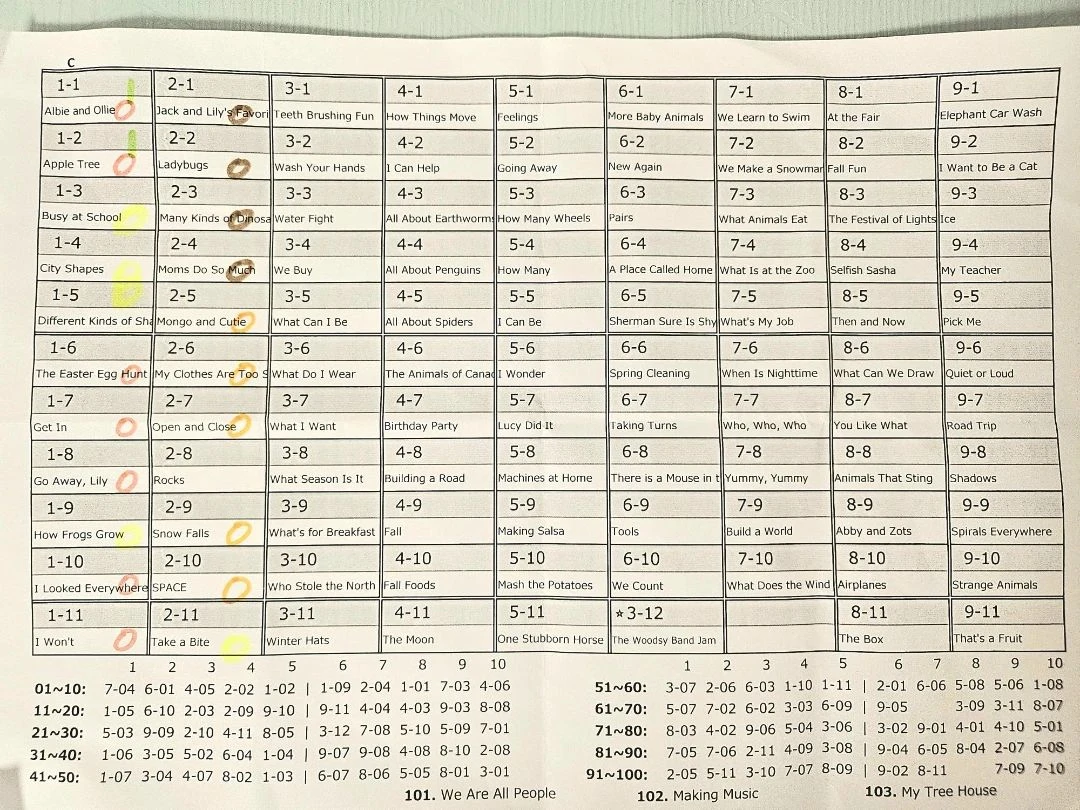 C
1-1 2-1 3-1 4-1 5-1 6-1 7-1 8-1 9-1
Albie and Ollie Jack and Lily's Favori Teeth Brushing Fun How Things Move Feelings More Baby Animals We Learn to Swim At the Fair Elephant Car Wash
1-2 2-2 3-2 4-2 5-2 6-2 7-2 8-2 9-2
Apple Tree Ladybugs Wash Your Hands I Can Help Going Away New Again We Make a Snowmar Fall Fun I Want to Be a Cat
1-3 2-3 3-3 4-3 5-3 6-3 7-3 8-3 9-3
Busy at School Many Kinds of Dinosa Water Fight All About Earthworms How Many Wheels Pairs What Animals Eat The Festival of Lights Ice
1-4 2-4 3-4 4-4 5-4 6-4 7-4 8-4 9-4
City Shapes Moms Do So Much We Buy All About Penguins How Many A Place Called Home What Is at the Zoo Selfish Sasha My Teacher
1-5 2-5 3-5 4-5 5-5 6-5 7-5 8-5 9-5
Different Kinds of Sha Mongo and Cutie What Can I Be All About Spiders I Can Be Sherman Sure Is Shy What's My Job Then and Now Pick Me
1-6 2-6 3-6 4-6 5-6 6-6 7-6 8-6 9-6
The Easter Egg Hunt My Clothes Are Too S What Do I Wear The Animals of Canad I Wonder Spring Cleaning When Is Nighttime What Can We Draw Quiet or Loud
1-7 2-7 3-7 4-7 5-7 6-7 7-7 8-7 9-7
Get In Open and Close What I Want Birthday Party Lucy Did It Taking Turns Who, Who, Who You Like What Road Trip
1-8 2-8 3-8 4-8 5-8 6-8 7-8 8-8 9-8
Go Away, Lily Rocks What Season Is It Building a Road Machines at Home There is a Mouse in t Yummy, Yummy Animals That Sting Shadows
1-9 2-9 3-9 4-9 5-9 6-9 7-9 8-9 9-9
How Frogs Grow Snow Falls What's for Breakfast Fall Making Salsa Tools Build a World Abby and Zots Spirals Everywhere
1-10 2-10 3-10 4-10 5-10 6-10 7-10 8-10 9-10
I Looked Everywhere SPACE Who Stole the North Fall Foods Mash the Potatoes We Count What Does the Wind Airplanes Strange Animals
1-11 2-11 3-11 4-11 5-11 ☆3-12 8-11 9-11
I Won't Take a Bite Winter Hats The Moon One Stubborn Horse The Woodsy Band Jam The Box That's a Fruit
1 2 3 4 5 6 7 8 9 10 1 2 3 4 5 6 7 8 9 10
01~10: 7-04 6-01 4-05 2-02 1-02 | 1-09 2-04 1-01 7-03 4-06 51~60: 3-07 2-06 6-03 1-10 1-11 | 2-01 6-06 5-08 5-06 1-08
11~20: 1-05 6-10 2-03 2-09 9-10 | 9-11 4-04 4-03 9-03 8-08 61~70: 5-07 7-02 6-02 3-03 6-09 | 9-05 3-09 3-11 8-07
21~30: 5-03 9-09 2-10 4-11 8-05 | 3-12 7-08 5-10 5-09 7-01 71~80: 8-03 4-02 9-06 5-04 3-06 | 3-02 9-01 4-01 4-10 5-01
31~40: 1-06 3-05 5-02 6-04 1-04 | 9-07 9-08 4-08 8-10 2-08 81~90: 7-05 7-06 2-11 4-09 3-08 | 9-04 6-05 8-04 2-07 6-08
41~50: 1-07 3-04 4-07 8-02 1-03 | 6-07 8-06 5-05 8-01 3-01 91~100: 2-05 5-11 3-10 7-07 8-09 | 9-02 8-11 7-09 7-10
101. We Are All People 102. Making Music 103. My Tree House